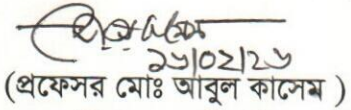 ২৬/০২/২৬
(প্রফেসর মোঃ আবুল কাসেম )